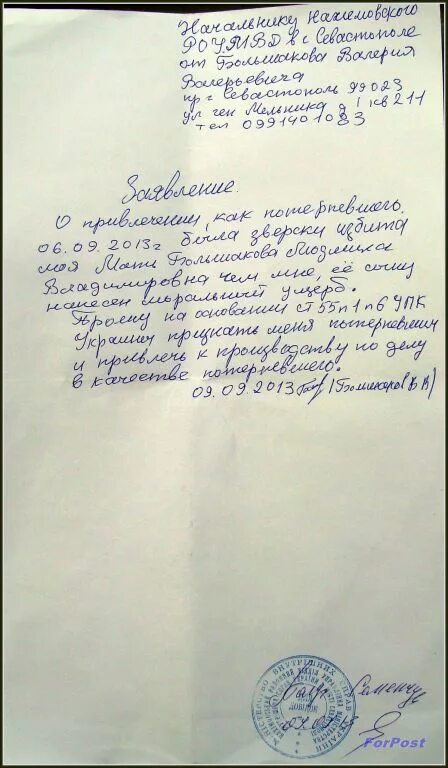 Начальнику Нахимовского
РОУМВД в г Севастополе
от Большакова Валерия
Валерьевича
пр г Севастополь 99023
ул ген Мельника д 1 кв 211
тел 0991401083
Заявление.
О привлечении, как потерпевшего.
06.09.2013г была зверски избита
моя Мать Большакова Людмила
Владимировна чем мне, её сыну
нанесен моральный ущерб.
Прошу на основании ст 55 п1 п6 УПК
Украины признать меня потерпевшим
и привлечь к производству по делу
в качестве потерпевшего.
09.09.2013 (Большаков В В)
МІНІСТЕРСТВО ВНУТРІШНІХ СПРАВ УКРАЇНИ
ForPost